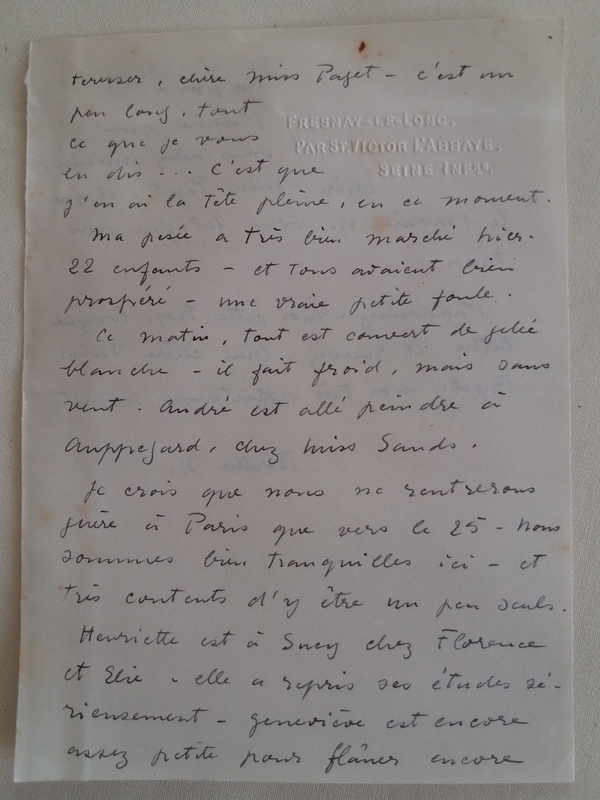 teresser, chère Miss Paget - c'est un
peu long, tout
FRESNAY-LE-LONG,
PAR ST. VICTOR L'ABBAYE,
SEINE INFRE.
ce que je vous
en dis ... C'est que
j'en ai la tête pleine, en ce moment.
Ma pesée a très bien marché hier.
22 enfants - et tous avaient bien
prospéré - une vraie petite foule.
Ce matin, tout est couvert de gelée
blanche - il fait froid, mais sans
vent. André est allé peindre à
Auppegard, chez Miss Sands.
Je crois que nous ne rentrerons
guère à Paris que vers le 25 - Nous
sommes bien tranquilles ici - et
très contents d'y être un peu seuls.
Henriette est à Sucy chez Florence
et Elie - elle a repris ses études sé-
rieusement - Geneviève est encore
assez petite pour flâner encore